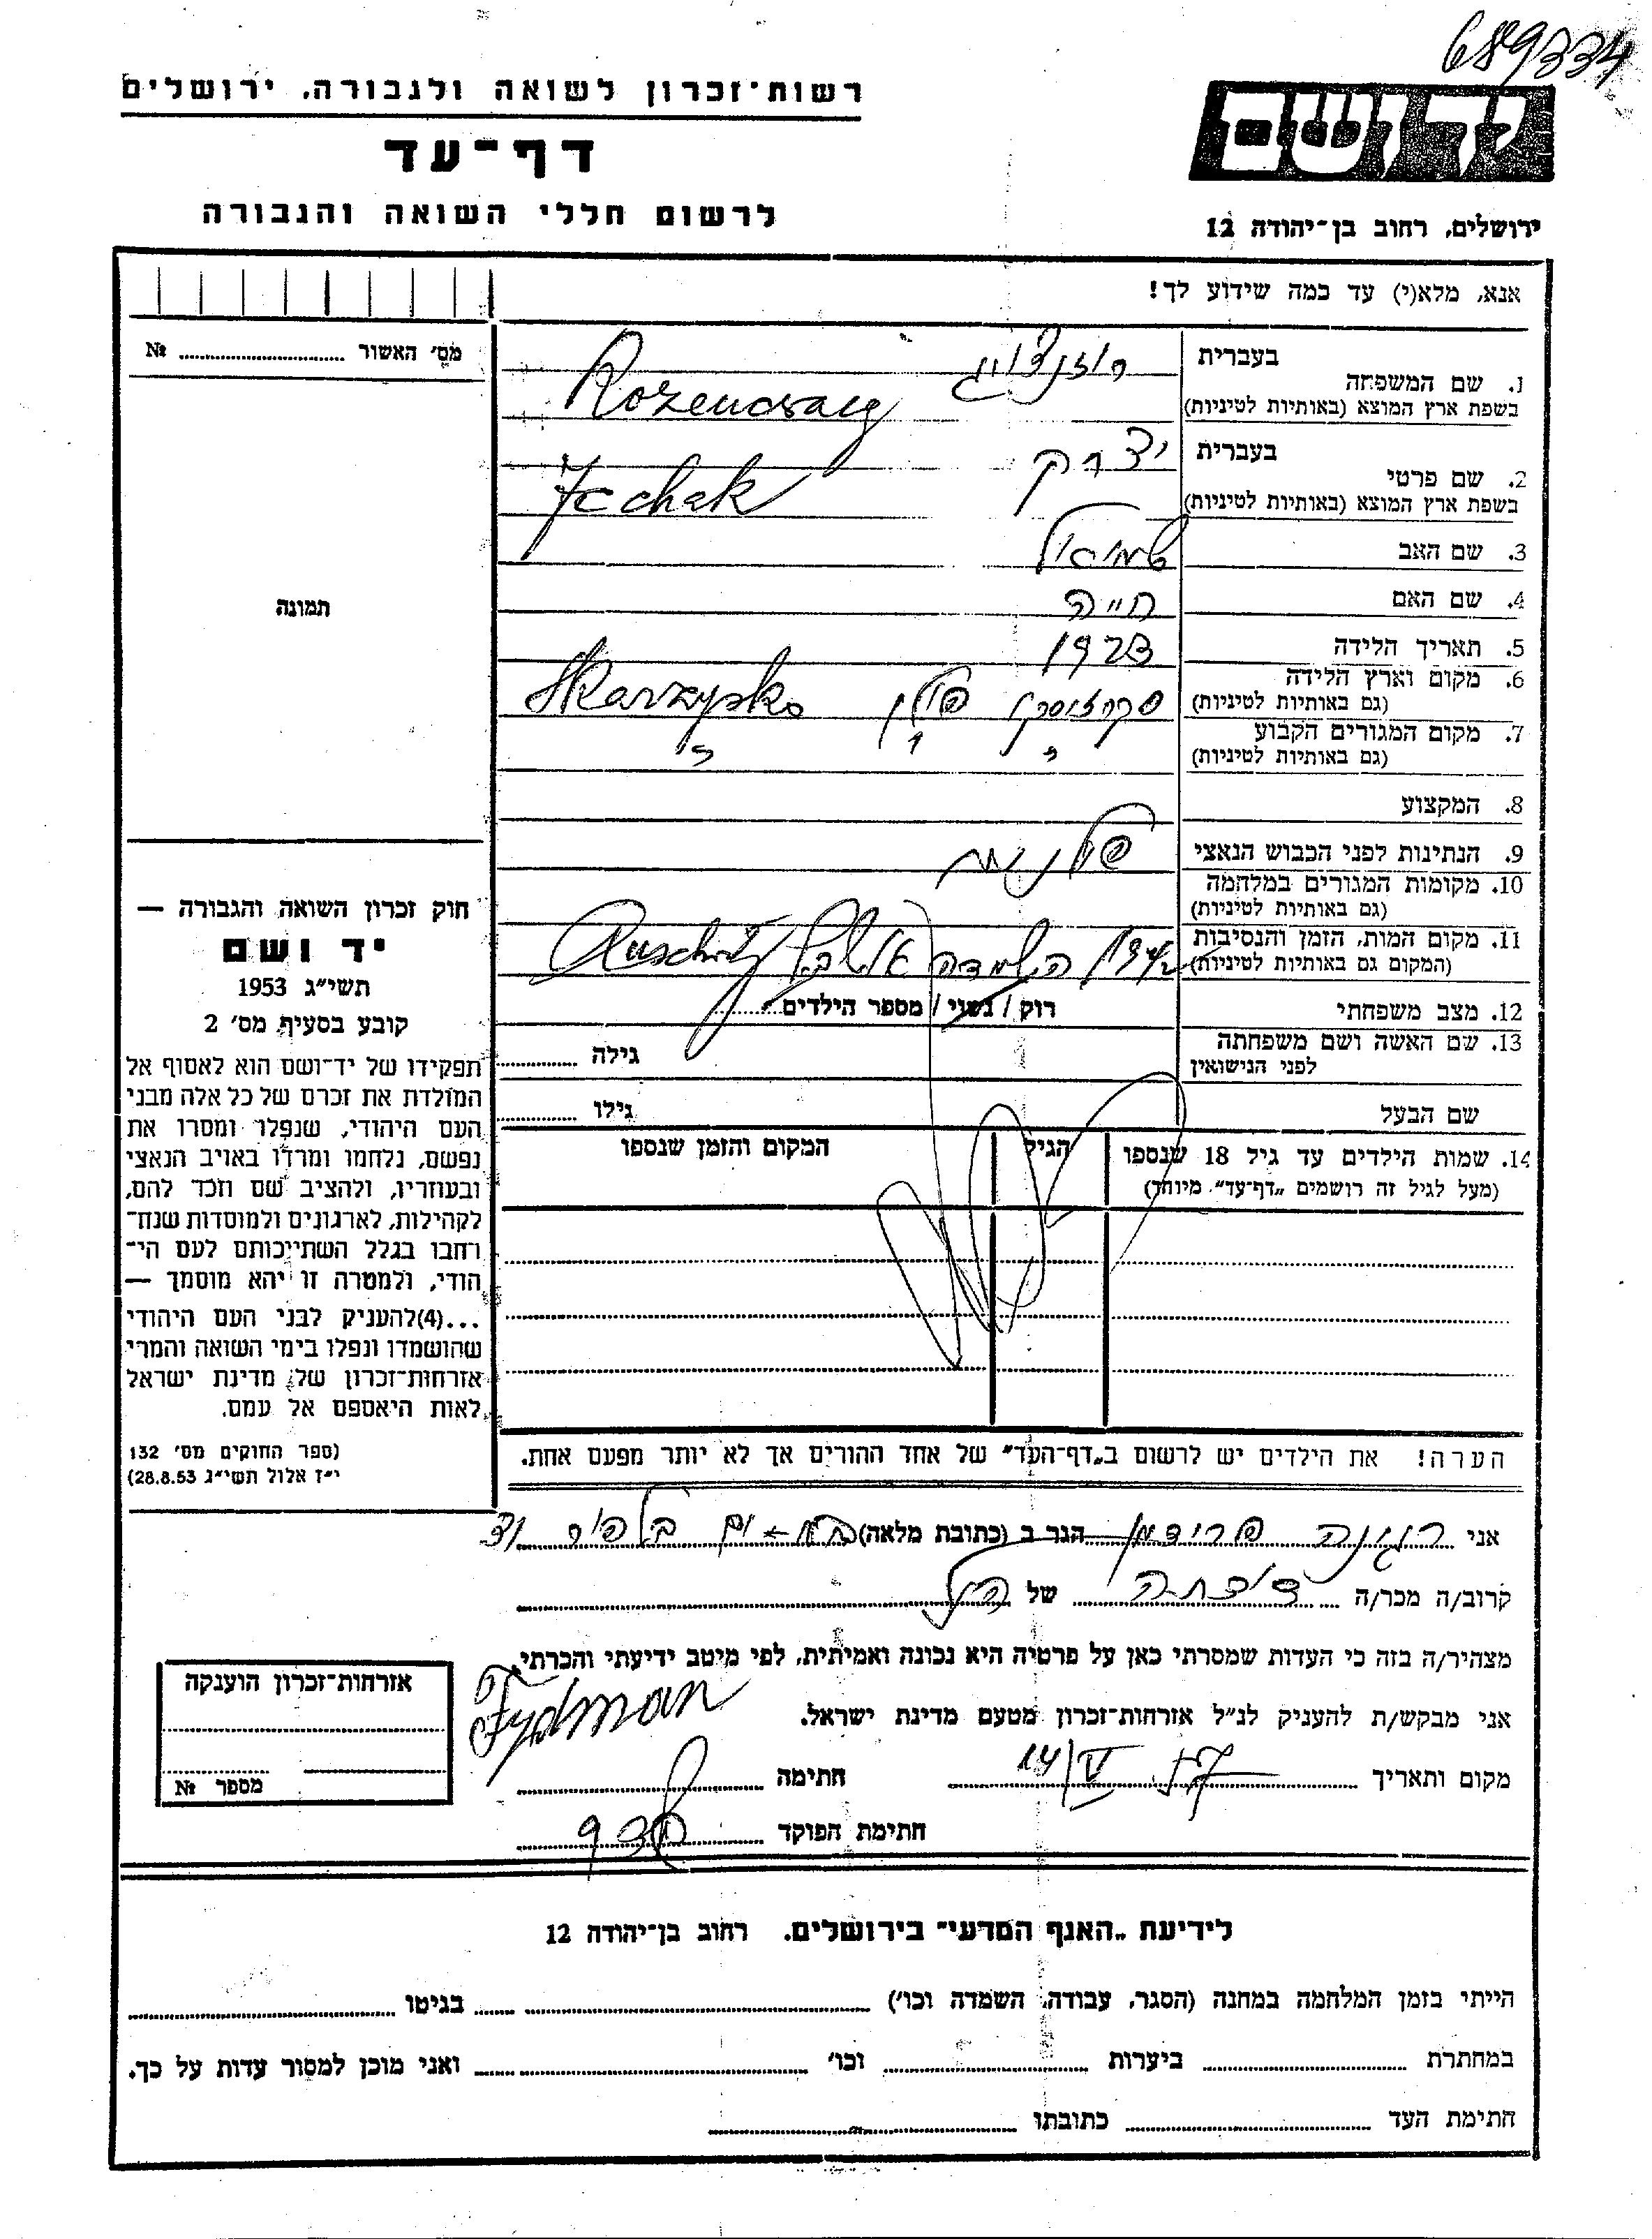 689334
רשות־זכרון לשואה ולגבורה, ירושלים
יד ושם
דף־עד
לרשום חללי השואה והגבורה
ירושלים, רחוב בן־יהודה 12
אנא, מלא(י) עד כמה שידוע לך!
מס׳ האשור № ........
1. שם המשפחה
בעברית רוזנצוייג
בשפת ארץ המוצא (באותיות לטיניות) Rozencwaig
2. שם פרטי
בעברית יצחק
בשפת ארץ המוצא (באותיות לטיניות) Icchak
3. שם האב שמואל
4. שם האם חייה
תמונה
5. תאריך הלידה 1923
6. מקום וארץ הלידה
(גם באותיות לטיניות) סקרזיסקו פולין Skarzysko
7. מקום המגורים הקבוע
(גם באותיות לטיניות)
8. המקצוע
9. הנתינות לפני הכבוש הנאצי פולנית
10. מקומות המגורים במלחמה
(גם באותיות לטיניות)
11. מקום המות, הזמן והנסיבות
(המקום גם באותיות לטיניות) 1942 השמדה Auschwitz
12. מצב משפחתי רוק / נשוי / מספר הילדים ........
13. שם האשה ושם משפחתה
לפני הנישואין גילה ........
שם הבעל גילו ........
14. שמות הילדים עד גיל 18 שנספו הגיל המקום והזמן שנספו
(מעל לגיל זה רושמים „דף־עד״ מיוחד)
הערה! את הילדים יש לרשום ב„דף־העד״ של אחד ההורים אך לא יותר מפעם אחת.
חוק זכרון השואה והגבורה —
יד ושם
תשי״ג 1953
קובע בסעיף מס׳ 2
תפקידו של יד־ושם הוא לאסוף אל
המולדת את זכרם של כל אלה מבני
העם היהודי, שנפלו ומסרו את
נפשם, נלחמו ומרדו באויב הנאצי
ובעוזריו, ולהציב שם וזכר להם,
לקהילות, לארגונים ולמוסדות שנח־
רחבו בגלל השתייכותם לעם הי־
הודי, ולמטרה זו יהא מוסמך —
...(4)להעניק לבני העם היהודי
שהושמדו ונפלו בימי השואה והמרי
אזרחות־זכרון של מדינת ישראל
לאות היאספם אל עמם.
(ספר החוקים מס׳ 132
י״ז אלול תשי״ג 28.8.53)
אני רגינה פרידמן הגר ב (כתובת מלאה) בת-ים בלפור
קרוב/ה מכר/ה של
מצהיר/ה בזה כי העדות שמסרתי כאן על פרטיה היא נכונה ואמיתית, לפי מיטב ידיעתי והכרתי.
אני מבקש/ת להעניק לנ״ל אזרחות־זכרון מטעם מדינת ישראל.
מקום ותאריך 14/V חתימה Frydman
חתימת הפוקד
אזרחות־זכרון הוענקה
מספר №
לידיעת „האגף המדעי״ בירושלים, רחוב בן־יהודה 12
הייתי בזמן המלחמה במחנה (הסגר, עבודה, השמדה וכו׳) ........ בגיטו ........
במחתרת ........ ביערות ........ וכו׳ ........ ואני מוכן למסור עדות על כך.
חתימת העד ........ כתובתו ........